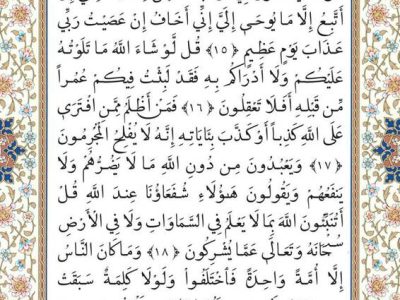 أَتَّبِعُ إِلَّا مَا يُوحَىٰ إِلَيَّ إِنِّي أَخَافُ إِنْ عَصَيْتُ رَبِّي
عَذَابَ يَوْمٍ عَظِيمٍ ﴿١٥﴾ قُل لَّوْ شَاءَ اللَّهُ مَا تَلَوْتُهُ
عَلَيْكُمْ وَلَا أَدْرَاكُم بِهِ فَقَدْ لَبِثْتُ فِيكُمْ عُمُرًا
مِّن قَبْلِهِ أَفَلَا تَعْقِلُونَ ﴿١٦﴾ فَمَنْ أَظْلَمُ مِمَّنِ افْتَرَىٰ
عَلَى اللَّهِ كَذِبًا أَوْ كَذَّبَ بِـَٔايَاتِهِ إِنَّهُ لَا يُفْلِحُ الْمُجْرِمُونَ
﴿١٧﴾ وَيَعْبُدُونَ مِن دُونِ اللَّهِ مَا لَا يَضُرُّهُمْ وَلَا
يَنفَعُهُمْ وَيَقُولُونَ هَٰؤُلَاءِ شُفَعَاؤُنَا عِندَ اللَّهِ قُلْ
أَتُنَبِّئُونَ اللَّهَ بِمَا لَا يَعْلَمُ فِي السَّمَاوَاتِ وَلَا فِي الْأَرْضِ
سُبْحَانَهُ وَتَعَالَىٰ عَمَّا يُشْرِكُونَ ﴿١٨﴾ وَمَا كَانَ النَّاسُ
إِلَّا أُمَّةً وَاحِدَةً فَاخْتَلَفُوا وَلَوْلَا كَلِمَةٌ سَبَقَتْ